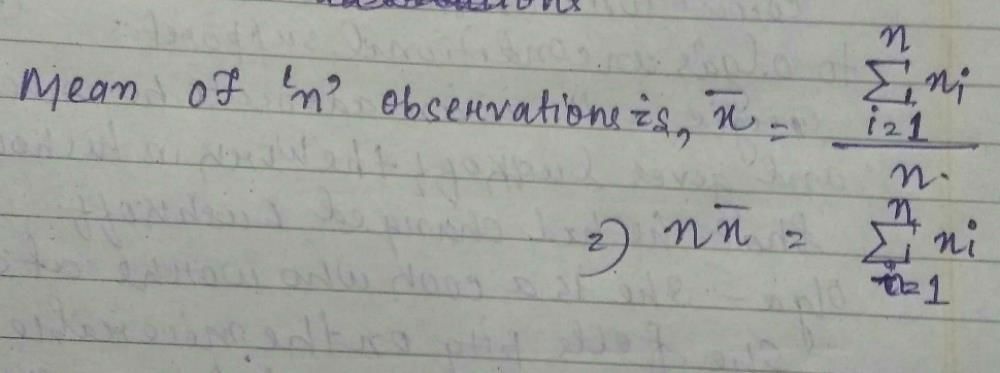 Mean of 'n' observations is, x̄ = \frac{\sum_{i=1}^{n} x_i}{n}.
⇒ n x̄ = \sum_{i=1}^{n} x_i